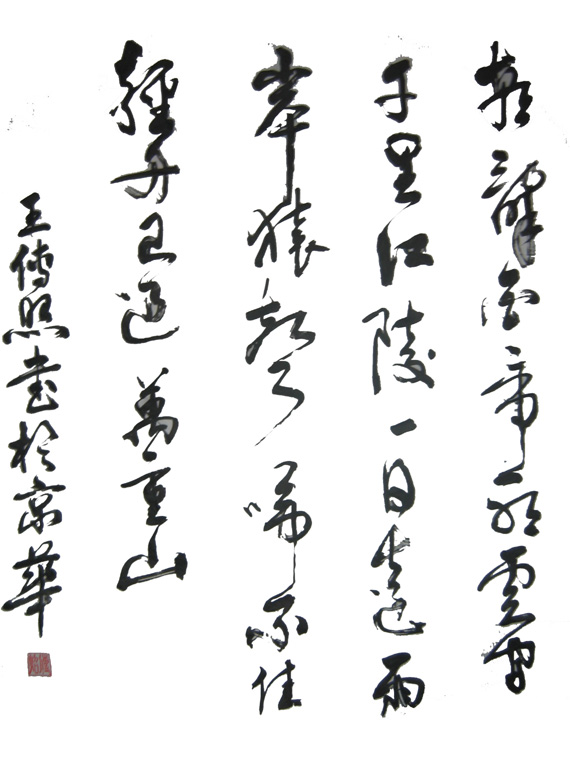 朝辭白帝彩雲間
千里江陵一日還兩
岸猿聲啼不住
輕舟已過萬重山
王傳照書於京華